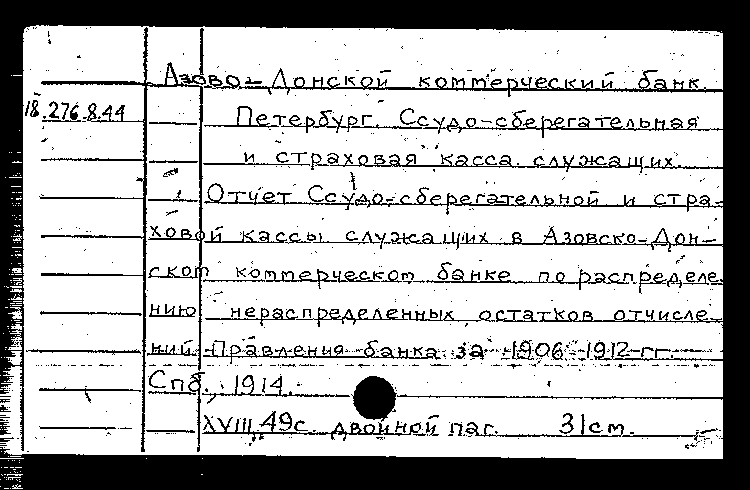 Азово-Донской коммерческий банк.
18.276.8.44 Петербург. Ссудо-сберегательная
и страховая касса служащих.
Отчет Ссудо-сберегательной и стра-
ховой кассы служащих в Азовско-Дон-
ском коммерческом банке по распределе
нию нераспределенных остатков отчисле-
ний Правления банка за 1906-1912 гг.
Спб., 1914.
XVIII, 49с. двойной паг. 31см.